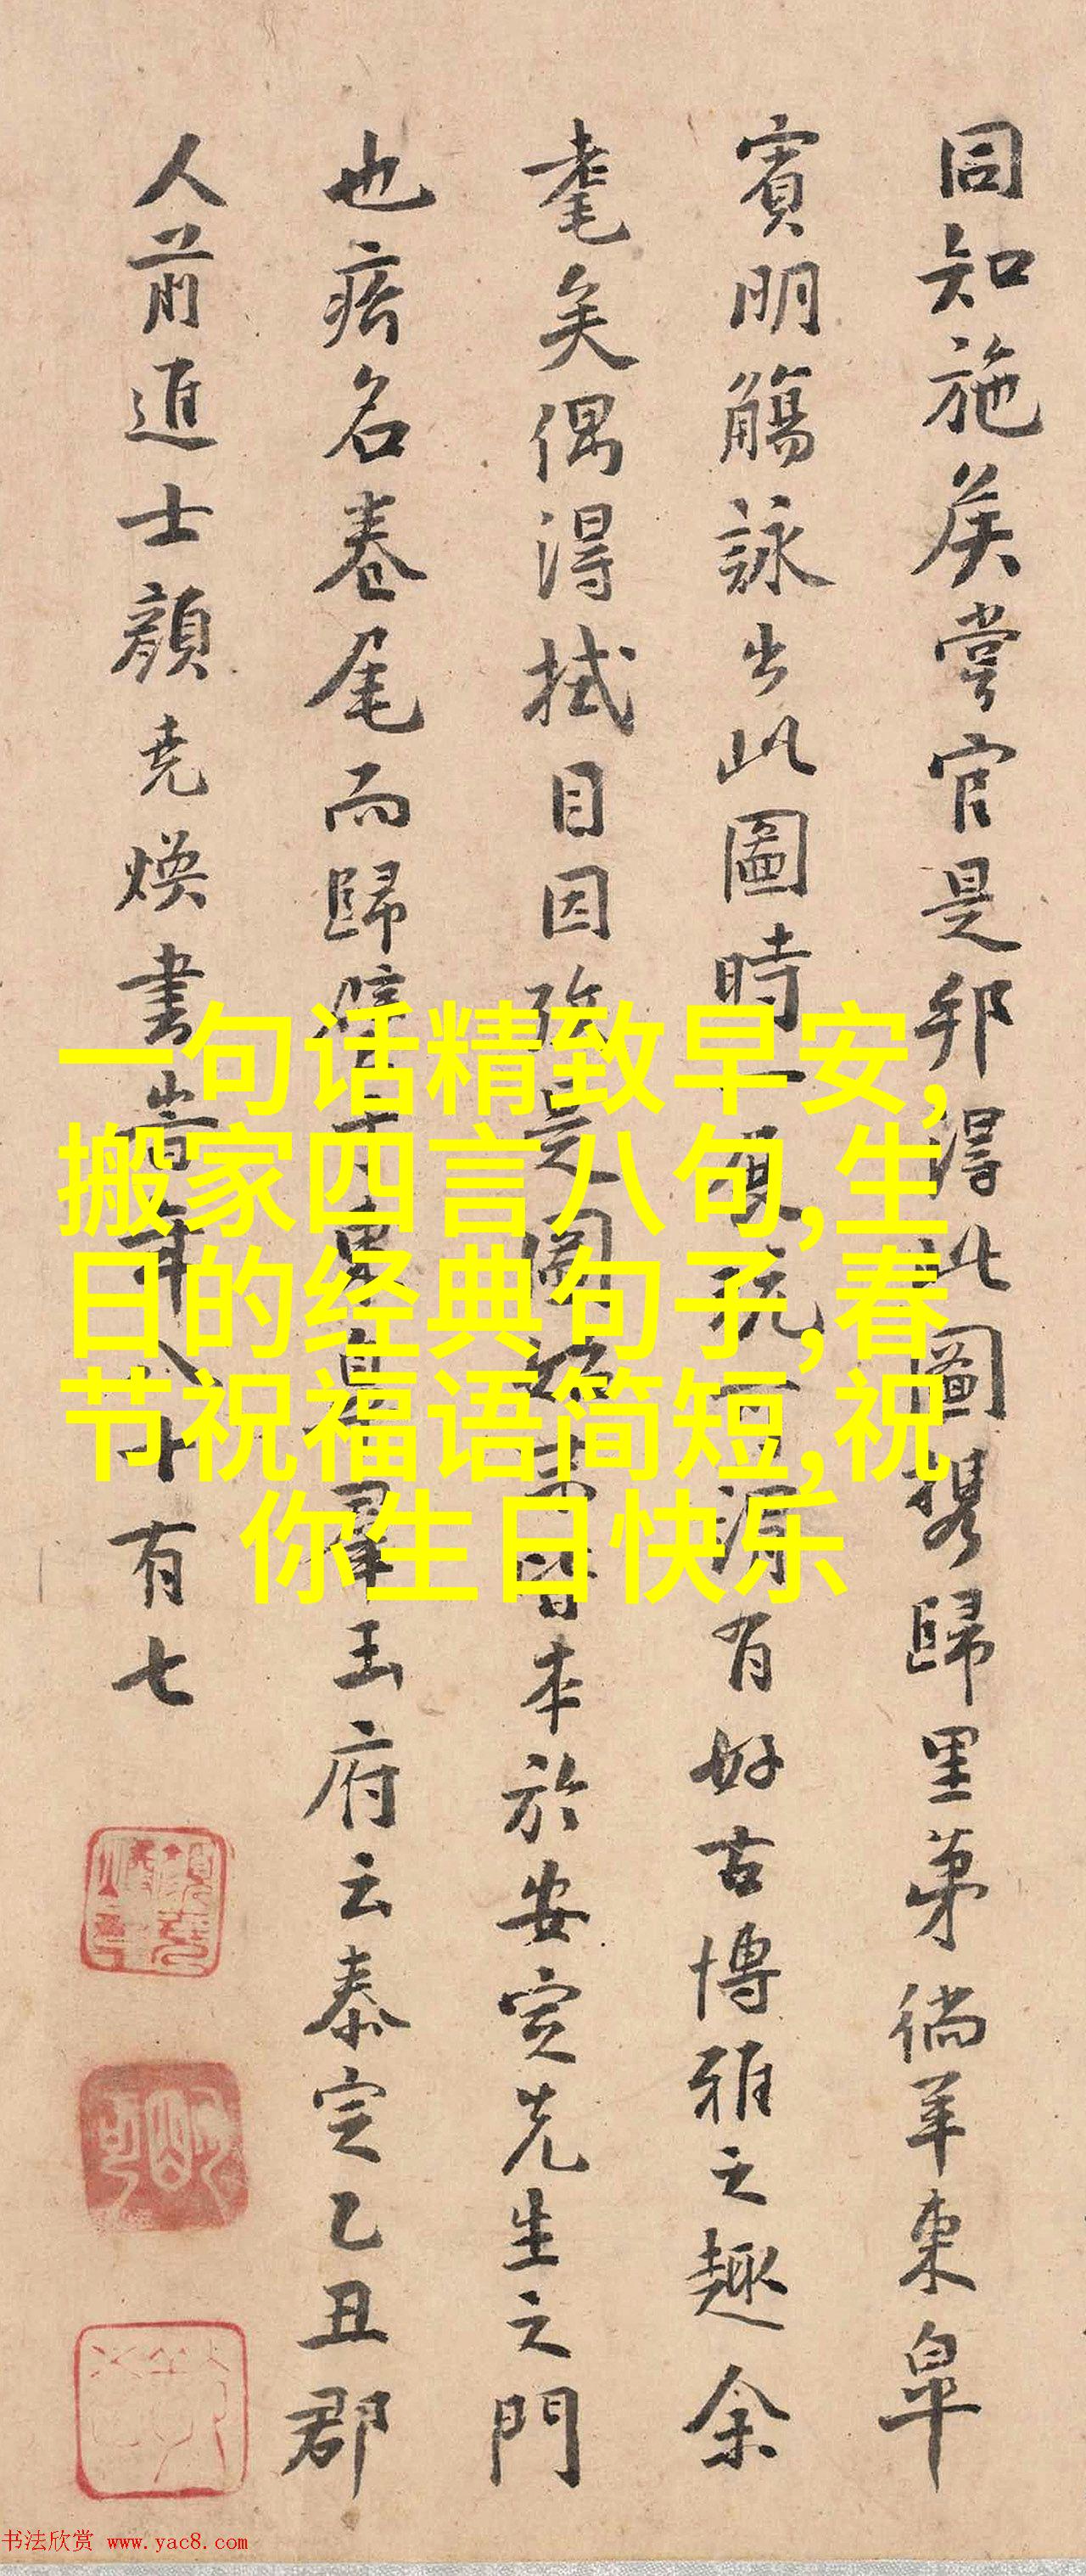 同知施侯嘗官是邦得此圖携歸里第徜羊東皐
賓明觴詠出此圖時一展玩可謂有好古博雅之趣余
耄矣偶得拭目因致是圖始末皆本於安定先生之門
也㾗名卷尾而歸
羣玉府云泰定乙丑郡
人前進士顏堯煥書旹年八十有七
一句话精致早安,
搬家四言八句,生
日的经典句子,春
节祝福语简短,祝
你生日快乐
书法欣赏 www.yac8.com